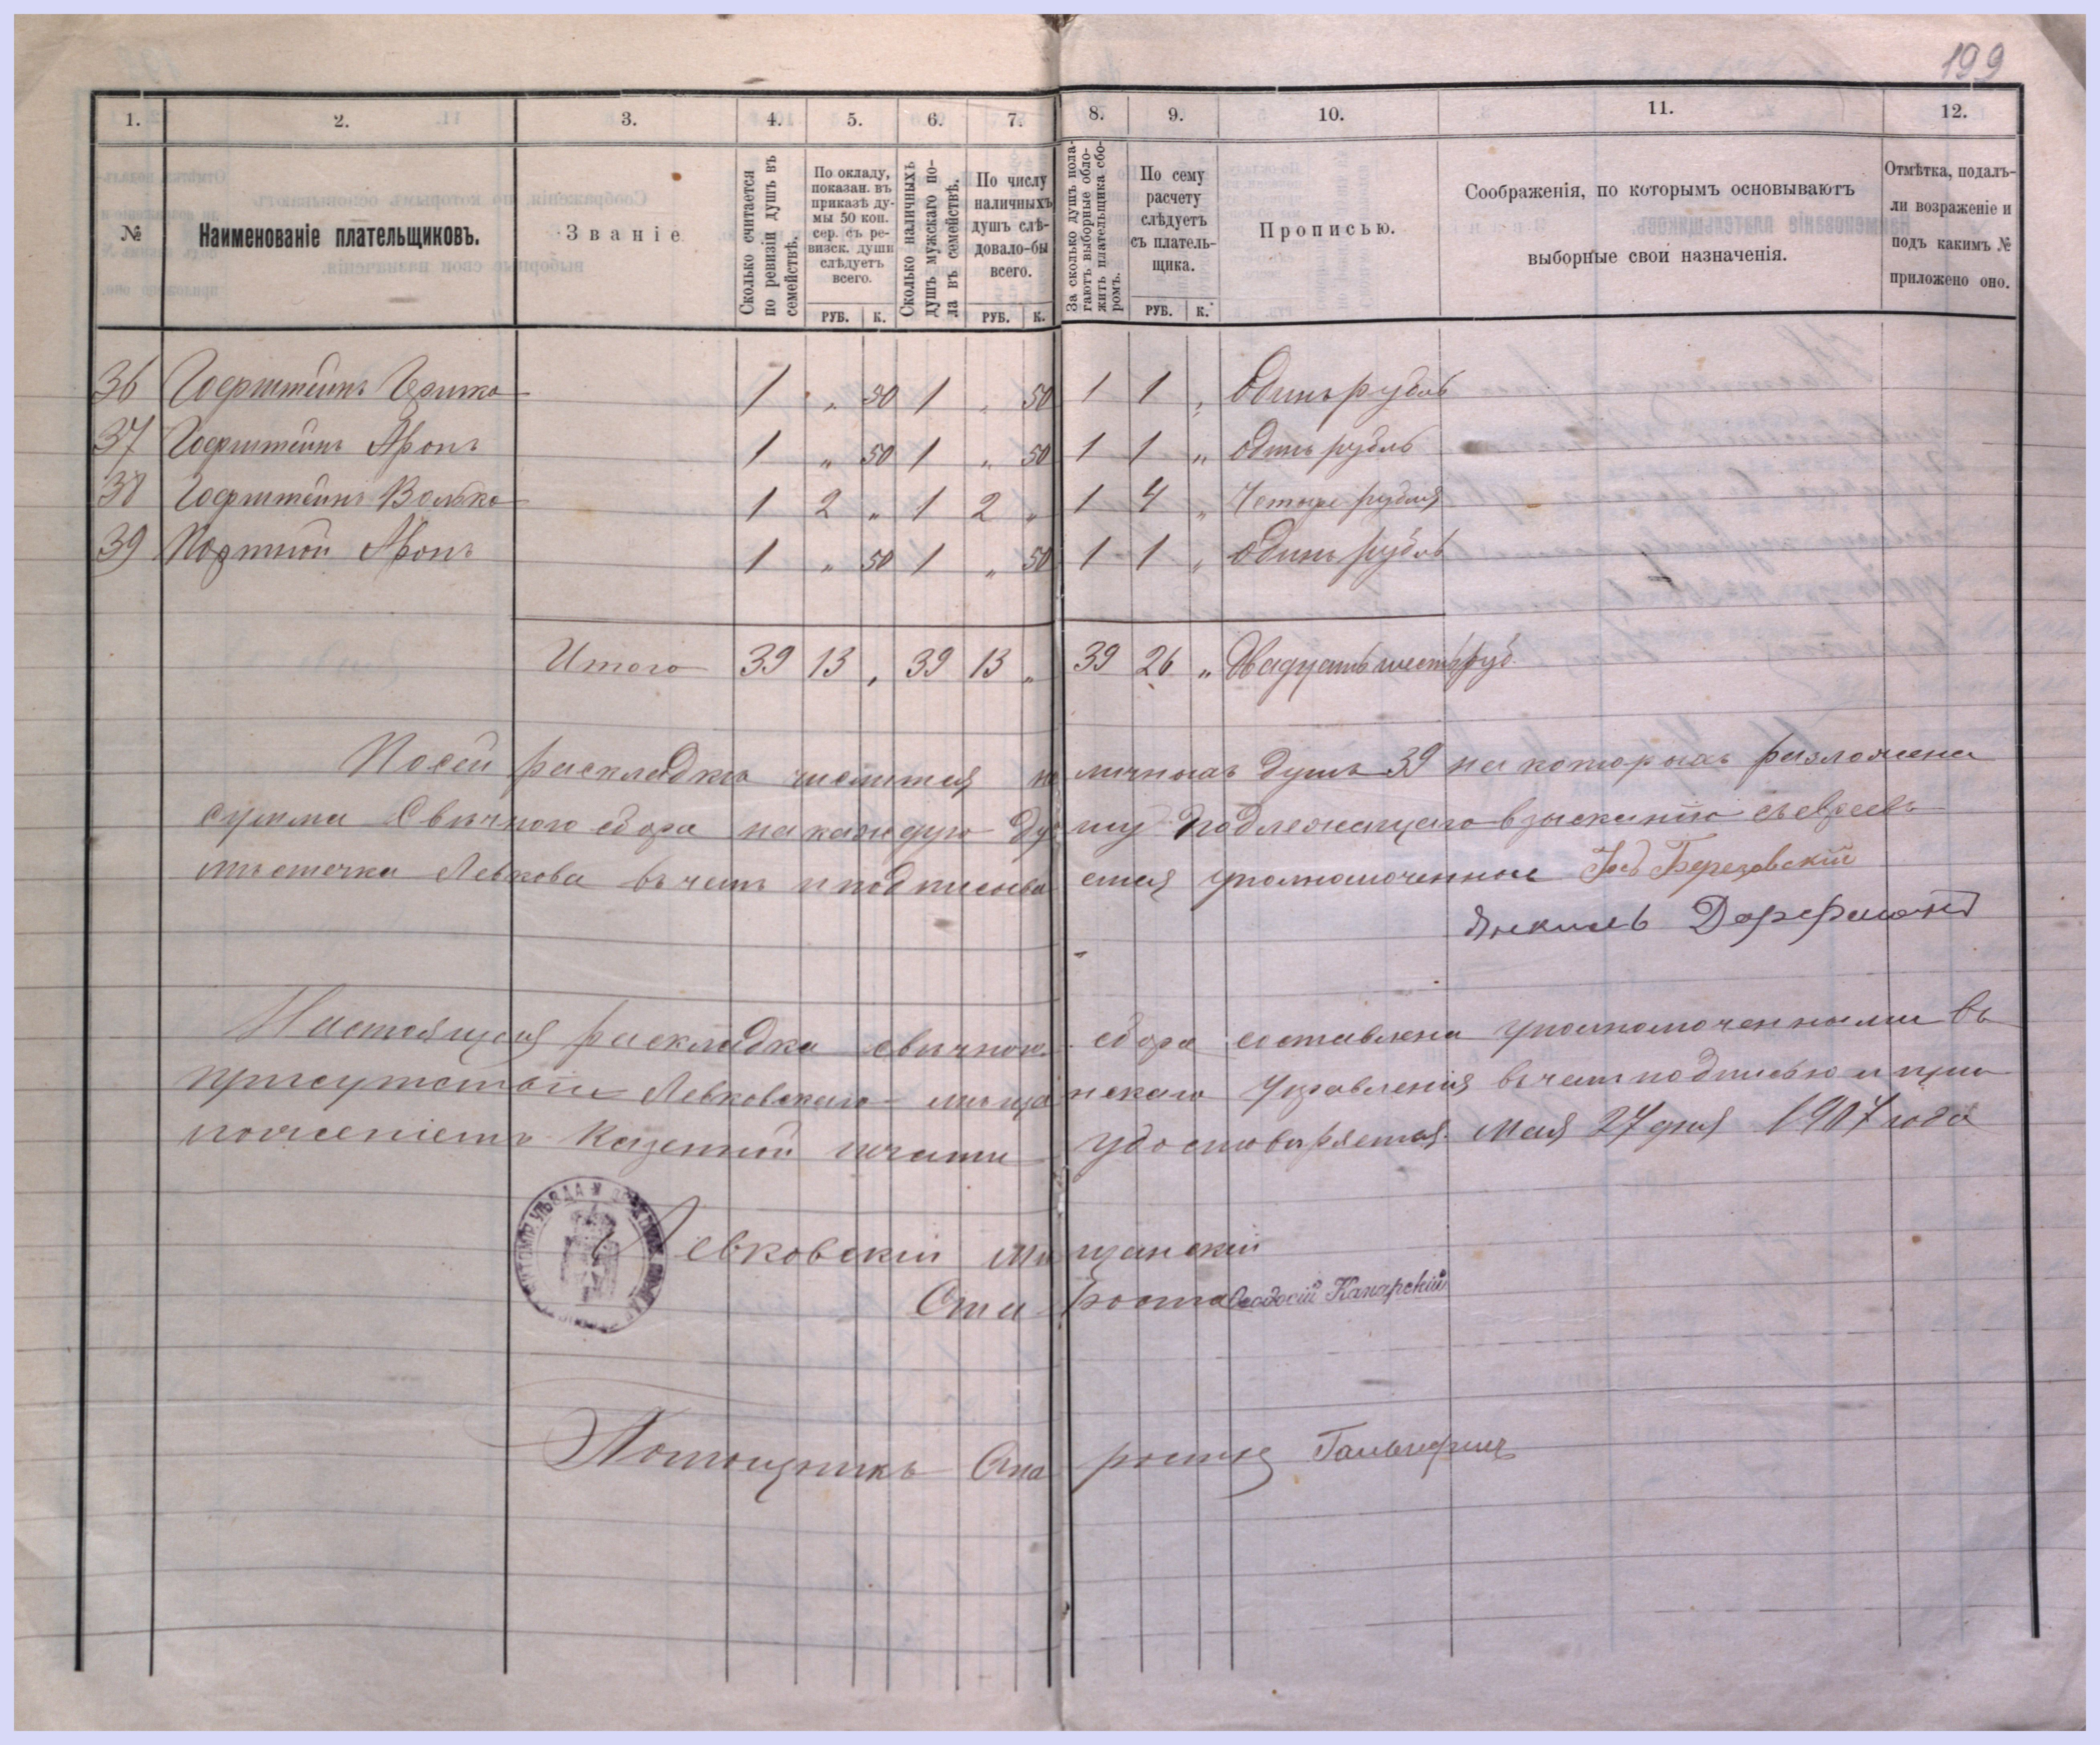 199
1. 2. 3. 4. 5. 6. 7. 8. 9. 10. 11. 12.
№
Наименованіе плательщиковъ.
Званіе
Сколько считается по ревизіи душъ въ семействѣ.
По окладу, показан. въ приказѣ думы 50 коп. сер. съ ревизск. души слѣдуетъ всего.
РУБ. К.
Сколько наличныхъ душъ мужскаго пола въ семействѣ.
По числу наличныхъ душъ слѣдовало-бы всего.
РУБ. К.
За сколько душъ полагаютъ выборные обложить плательщика сборомъ.
По сему расчету слѣдуетъ съ плательщика.
РУБ. К.
Прописью.
Соображенія, по которымъ основываютъ
выборные свои назначенія.
Отмѣтка, подалъ-ли возраженіе и подъ какимъ № приложено оно.
36 Гоерштейнъ 1 „ 50 1 „ 50 1 1 „ Одинъ рубль
37 Гоерштейнъ Аронъ 1 „ 50 1 „ 50 1 1 „ Одинъ рубль
38 Гоерштейнъ Волько 1 2 „ 1 2 „ 1 4 „ Четыре рубля
39 Портной Аронъ 1 „ 50 1 „ 50 1 1 „ Одинъ рубль
Итого 39 13 „ 39 13 „ 39 26 „ Двадцать шесть руб.
По сей раскладкѣ числится наличныхъ душъ 39 на которыхъ разложена
сумма Свѣчного сбора на каждую душу подлежащаго взысканію съ евреевъ
мѣстечка Левкова въ чемъ и подписываемся уполномоченные Іосъ Березовскій
Янкель Дорфманъ
Настоящая раскладка свѣчного сбора составлена уполномоченными въ
присутствіи Левковскаго мѣщанскаго Управленія въ чемъ подписью и при
ложеніемъ Казенной печати удостовѣряется. Мая 27 дня 1907 года
Левковскій мѣщанскій
Староста Ѳеодосій Канарскій
Помощникъ Старосты